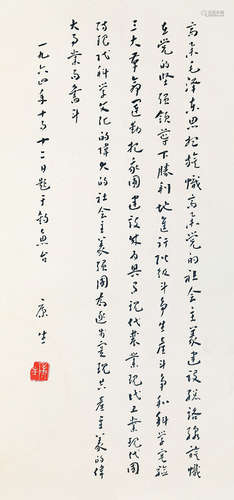 高举毛泽东思想旗帜高举党的社会主义建设总路线旗帜
在党的坚强领导下胜利地进行阶级斗争生产斗争和科学实验
三大革命运动把我国建设成为具有现代农业现代工业现代国
防现代科学文化的偉大的社会主义强国为逐步实现共产主义的偉
大事业而奮斗
一九六四年十月十二日题于钓鱼台
康生